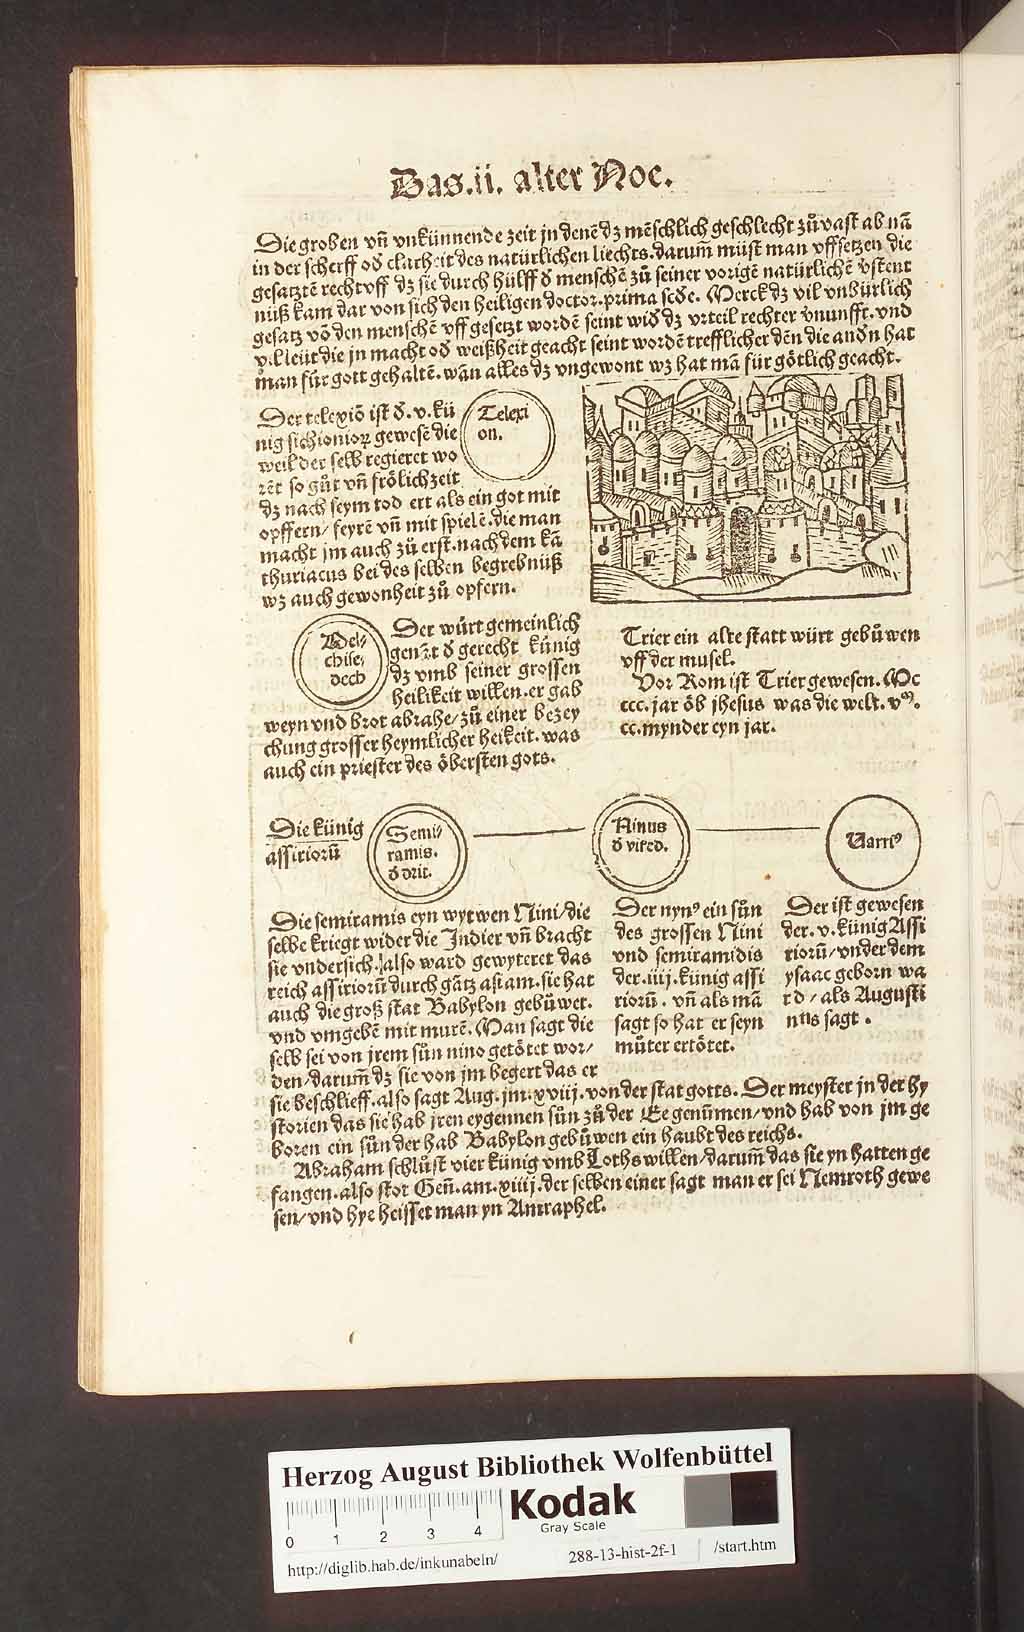 Das.ii. alter Noe.
Die groben vñ vnkünnende zeit jn denẽ dz mẽschlich geschlecht zůvast ab nã
in der scherff oď clarheit des natürlichen liechts.darum̃ můst man vffsetzen die
gesatztẽ recht vff dz sie durch hülff ď menschẽ zů seiner vorigẽ natürlichẽ v̉stent
nüß kam dar von sich den heiligen doctor.prima secďe. Merck dz vil vnbürlich
gesatz võ den menschẽ vff gesetzt wordẽ seint wiď dz vrteil rechter v̉nunfft.vnd
vil leüt die jn macht oď weißheit geacht seint wordẽ trefflicher dẽn die anďn hat
man für gott gehaltẽ.wãn alles dz vngewont wz hat mã für götlich geacht.
Der telexiõ ist ď.v.kü
nig sichioniorꝝ gewesẽ die
weil der selb regieret wo
rẽt so gůt vñ frölich zeit
dz nach seym tod ert als ein got mit
opffern/feyrẽ vñ mit spielẽ.die man
macht jm auch zů erst.nach dem kã
thuriacus bei des selben begrebnüß
wz auch gewonheit zů opfern.
Telexi
on.
Mel⸗
chise⸗
dech
Der würt gemeinlich
genãt ď gerecht künig
dz vmb seiner grossen
heilikeit willen.er gab
weyn vnd brot abrahe/zů einer bezey
chung grosser heymlicher heikeit.was
auch ein priester des öbersten gots.
Trier ein alte statt würt gebůwen
vff der musel.
Vor Rom ist Trier gewesen.Mc
ccc.jar öb jhesus was die welt.vᵐ.
cc.mynder eyn jar.
Die künig
assirioruͫ
Semi⸗
ramis.
ď drit.
Ninus
ď vierd.
Uarrꝰ
Die semiramis eyn wytwen Nini/die
selbe kriegt wider die Indier vñ bracht
sie vndersich.also ward gewyteret das
reich assirioruͫ durch gãtz asiam.sie hat
auch die groß stat Babylon gebůwet.
vnd vmgebẽ mit murẽ.Man sagt die
selb sei von jrem sůn nino getötet wor/
den/darum̃ dz sie von jm begert das er
sie beschlieff.also sagt Aug.jm.xviij.von der stat gotts. Der meyster jn der hy
storien das sie hab jren eygennen sůn zů der Ee genum̃en/vnd hab von jm ge
boren ein sůn der hab Babylon gebůwen ein haubt des reichs.
Der nynꝰ ein sůn
des grossen Nini
vnd semiramidis
der.iiij.künig assi
rioruͫ. vñ als mã
sagt so hat er seyn
můter ertötet.
Der ist gewesen
der.v.künig Assi
rioruͫ/vnder dem
ysaac geborn wa
rd/als Augusti
nus sagt.
Abraham schlůst vier künig vmb Loths willen/darum̃ das sie yn hatten ge
fangen.also stot Geñ.am.xiiij.der selben einer sagt man er sei Nemroth gewe
sen/vnd hye heisset man yn Amraphel.
Herzog August Bibliothek Wolfenbüttel
0 1 2 3 4
Kodak
Gray Scale
http://diglib.hab.de/inkunabeln/
288-13-hist-2f-1
/start.htm